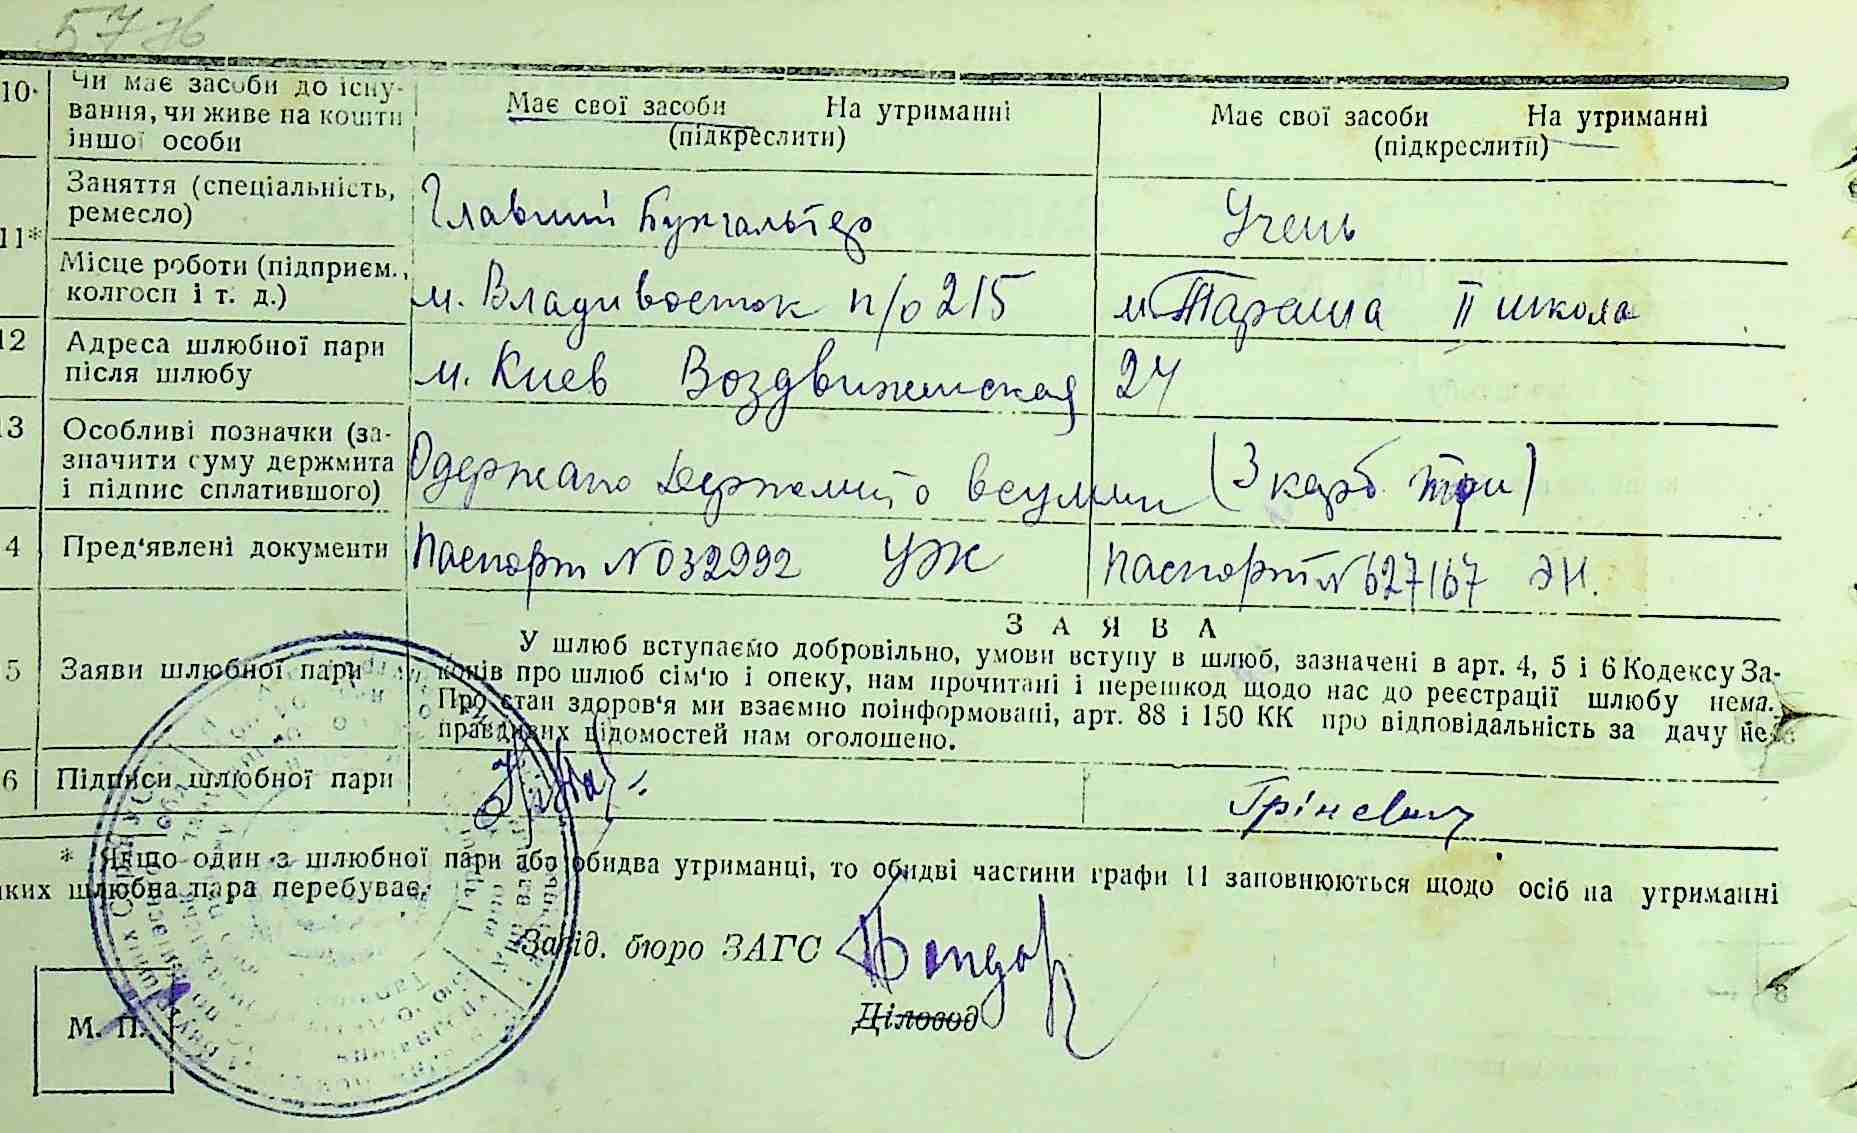 57
10· Чи має засоби до існу- Має свої засоби На утриманні Має свої засоби На утриманні
вання, чи живе на кошти (підкреслити) (підкреслити)
іншої особи
11* Заняття (спеціальність, Главний Бухгальтер Учень
ремесло)
Місце роботи (підприєм., м. Владивосток п/о 215 м. Тараща ІІ школа
колгосп і т. д.)
12 Адреса шлюбної пари м. Киев Воздвиженская 24
після шлюбу
13 Особливі позначки (за- Одержано держмито всумми (3 карб три)
значити суму держмита
і підпис сплатившого)
4 Пред'явлені документи Паспорт № 032992 УЖ паспорт № 627167 ЭН.
З А Я В А
5 Заяви шлюбної пари У шлюб вступаємо добровільно, умови вступу в шлюб, зазначені в арт. 4, 5 і 6 Кодексу За-
конів про шлюб сім'ю і опеку, нам прочитані і перешкод щодо нас до реєстрації шлюбу нема.
Про стан здоров'я ми взаємно поінформовані, арт. 88 і 150 КК про відповідальність за дачу не-
правдивих відомостей нам оголошено.
6 Підписи шлюбної пари Гріневич
* Якщо один з шлюбної пари або обидва утриманці, то обидві частини графи 11 заповнюються щодо осіб на утриманні
яких шлюбна пара перебуває.
Завід. бюро ЗАГС Бондар
Діловод
М. П.